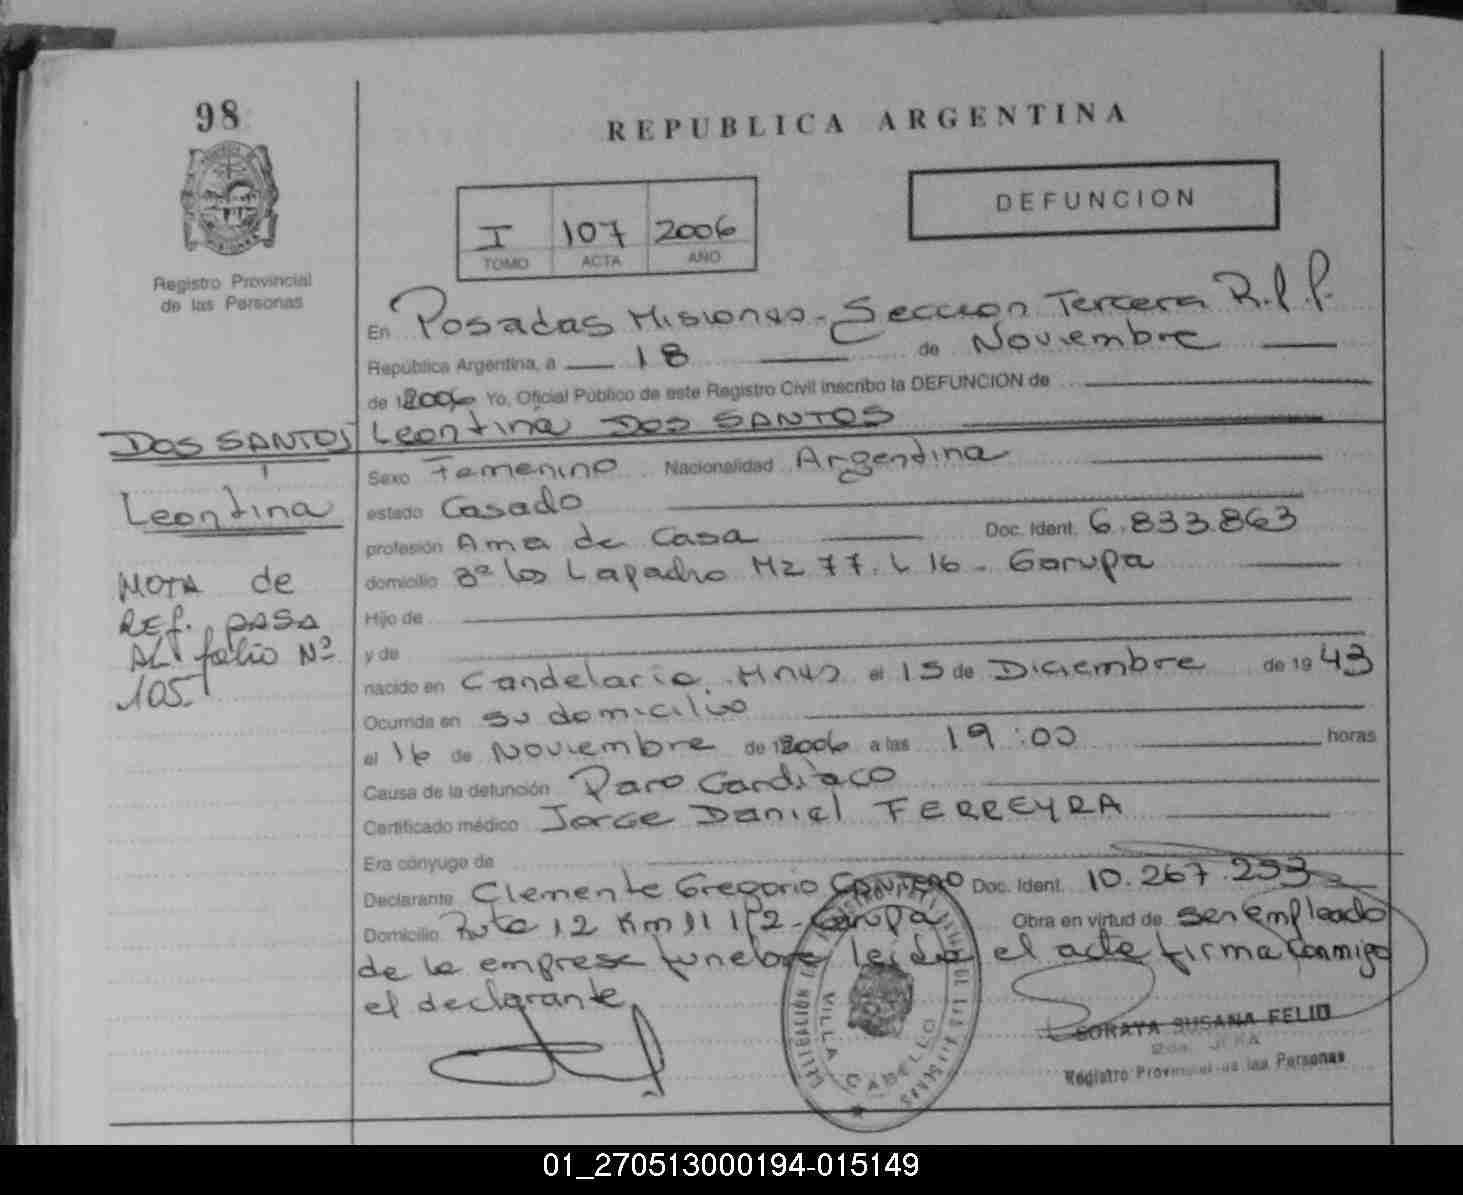 98
REPUBLICA ARGENTINA
DEFUNCION
I 107 2006
TOMO ACTA AÑO
Registro Provincial
de las Personas
En Posadas Misiones - Seccion Tercera R.P.P.
República Argentina, a 18 de Noviembre
de 2006 Yo, Oficial Público de este Registro Civil inscribo la DEFUNCION de
DOS SANTOS
Leontina DOS SANTOS
Leontina
Sexo Femenino Nacionalidad Argentina
estado Casado
profesión Ama de Casa Doc. Ident. 6.833.863
domicilio Bº los Lapacho Mz 77. L 16 - Garupa
NOTA de
REF. PASA
AL folio Nº
105
Hijo de
y de
nacido en Candelaria, Mnes el 15 de Diciembre de 1943
Ocurrida en su domicilio
el 16 de Noviembre de 2006 a las 19:00 horas
Causa de la defunción Paro Cardiaco
Certificado médico Jorge Daniel FERREYRA
Era cónyuge de
Declarante Clemente Gregorio Doc. Ident. 10.267.253
Domicilio Ruta 12 Km 11 1/2 - Garupa Obra en virtud de ser empleado
de la empresa funebre leida el acta firma conmigo
el declarante
VILLA CABELLO
SORAYA SUSANA FELIO
Registro Provincial de las Personas
01_270513000194-015149